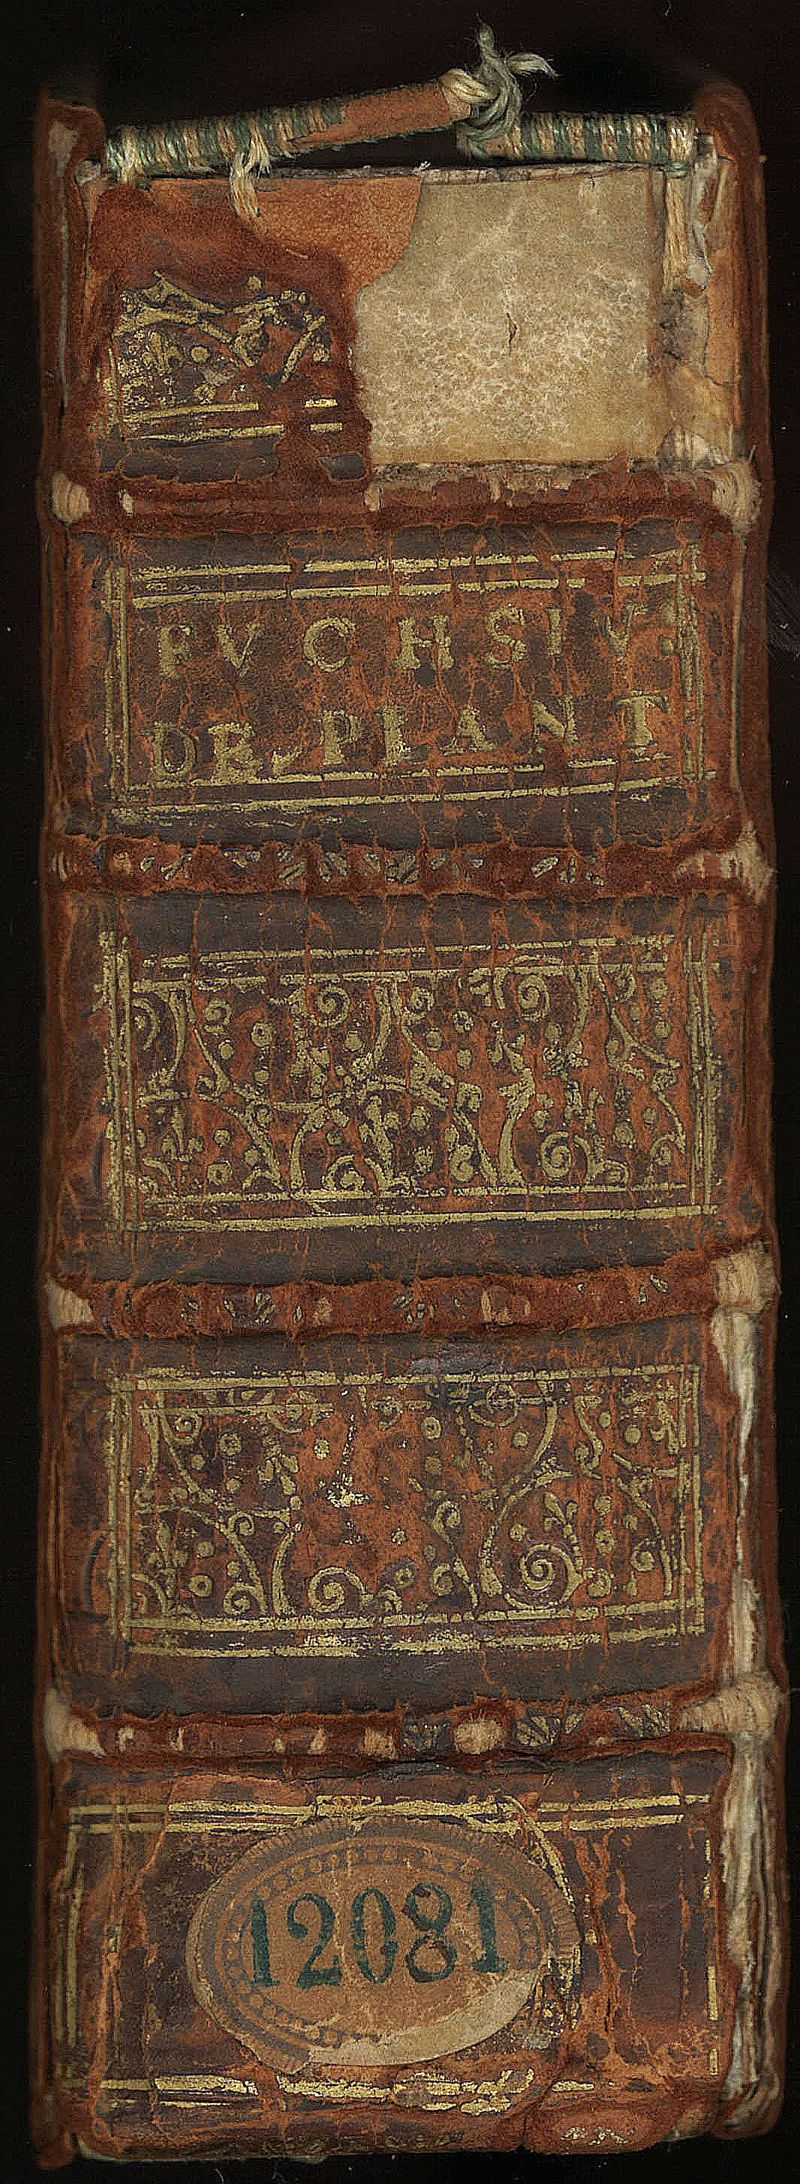 FVCHSIV
DE PLANT
12081